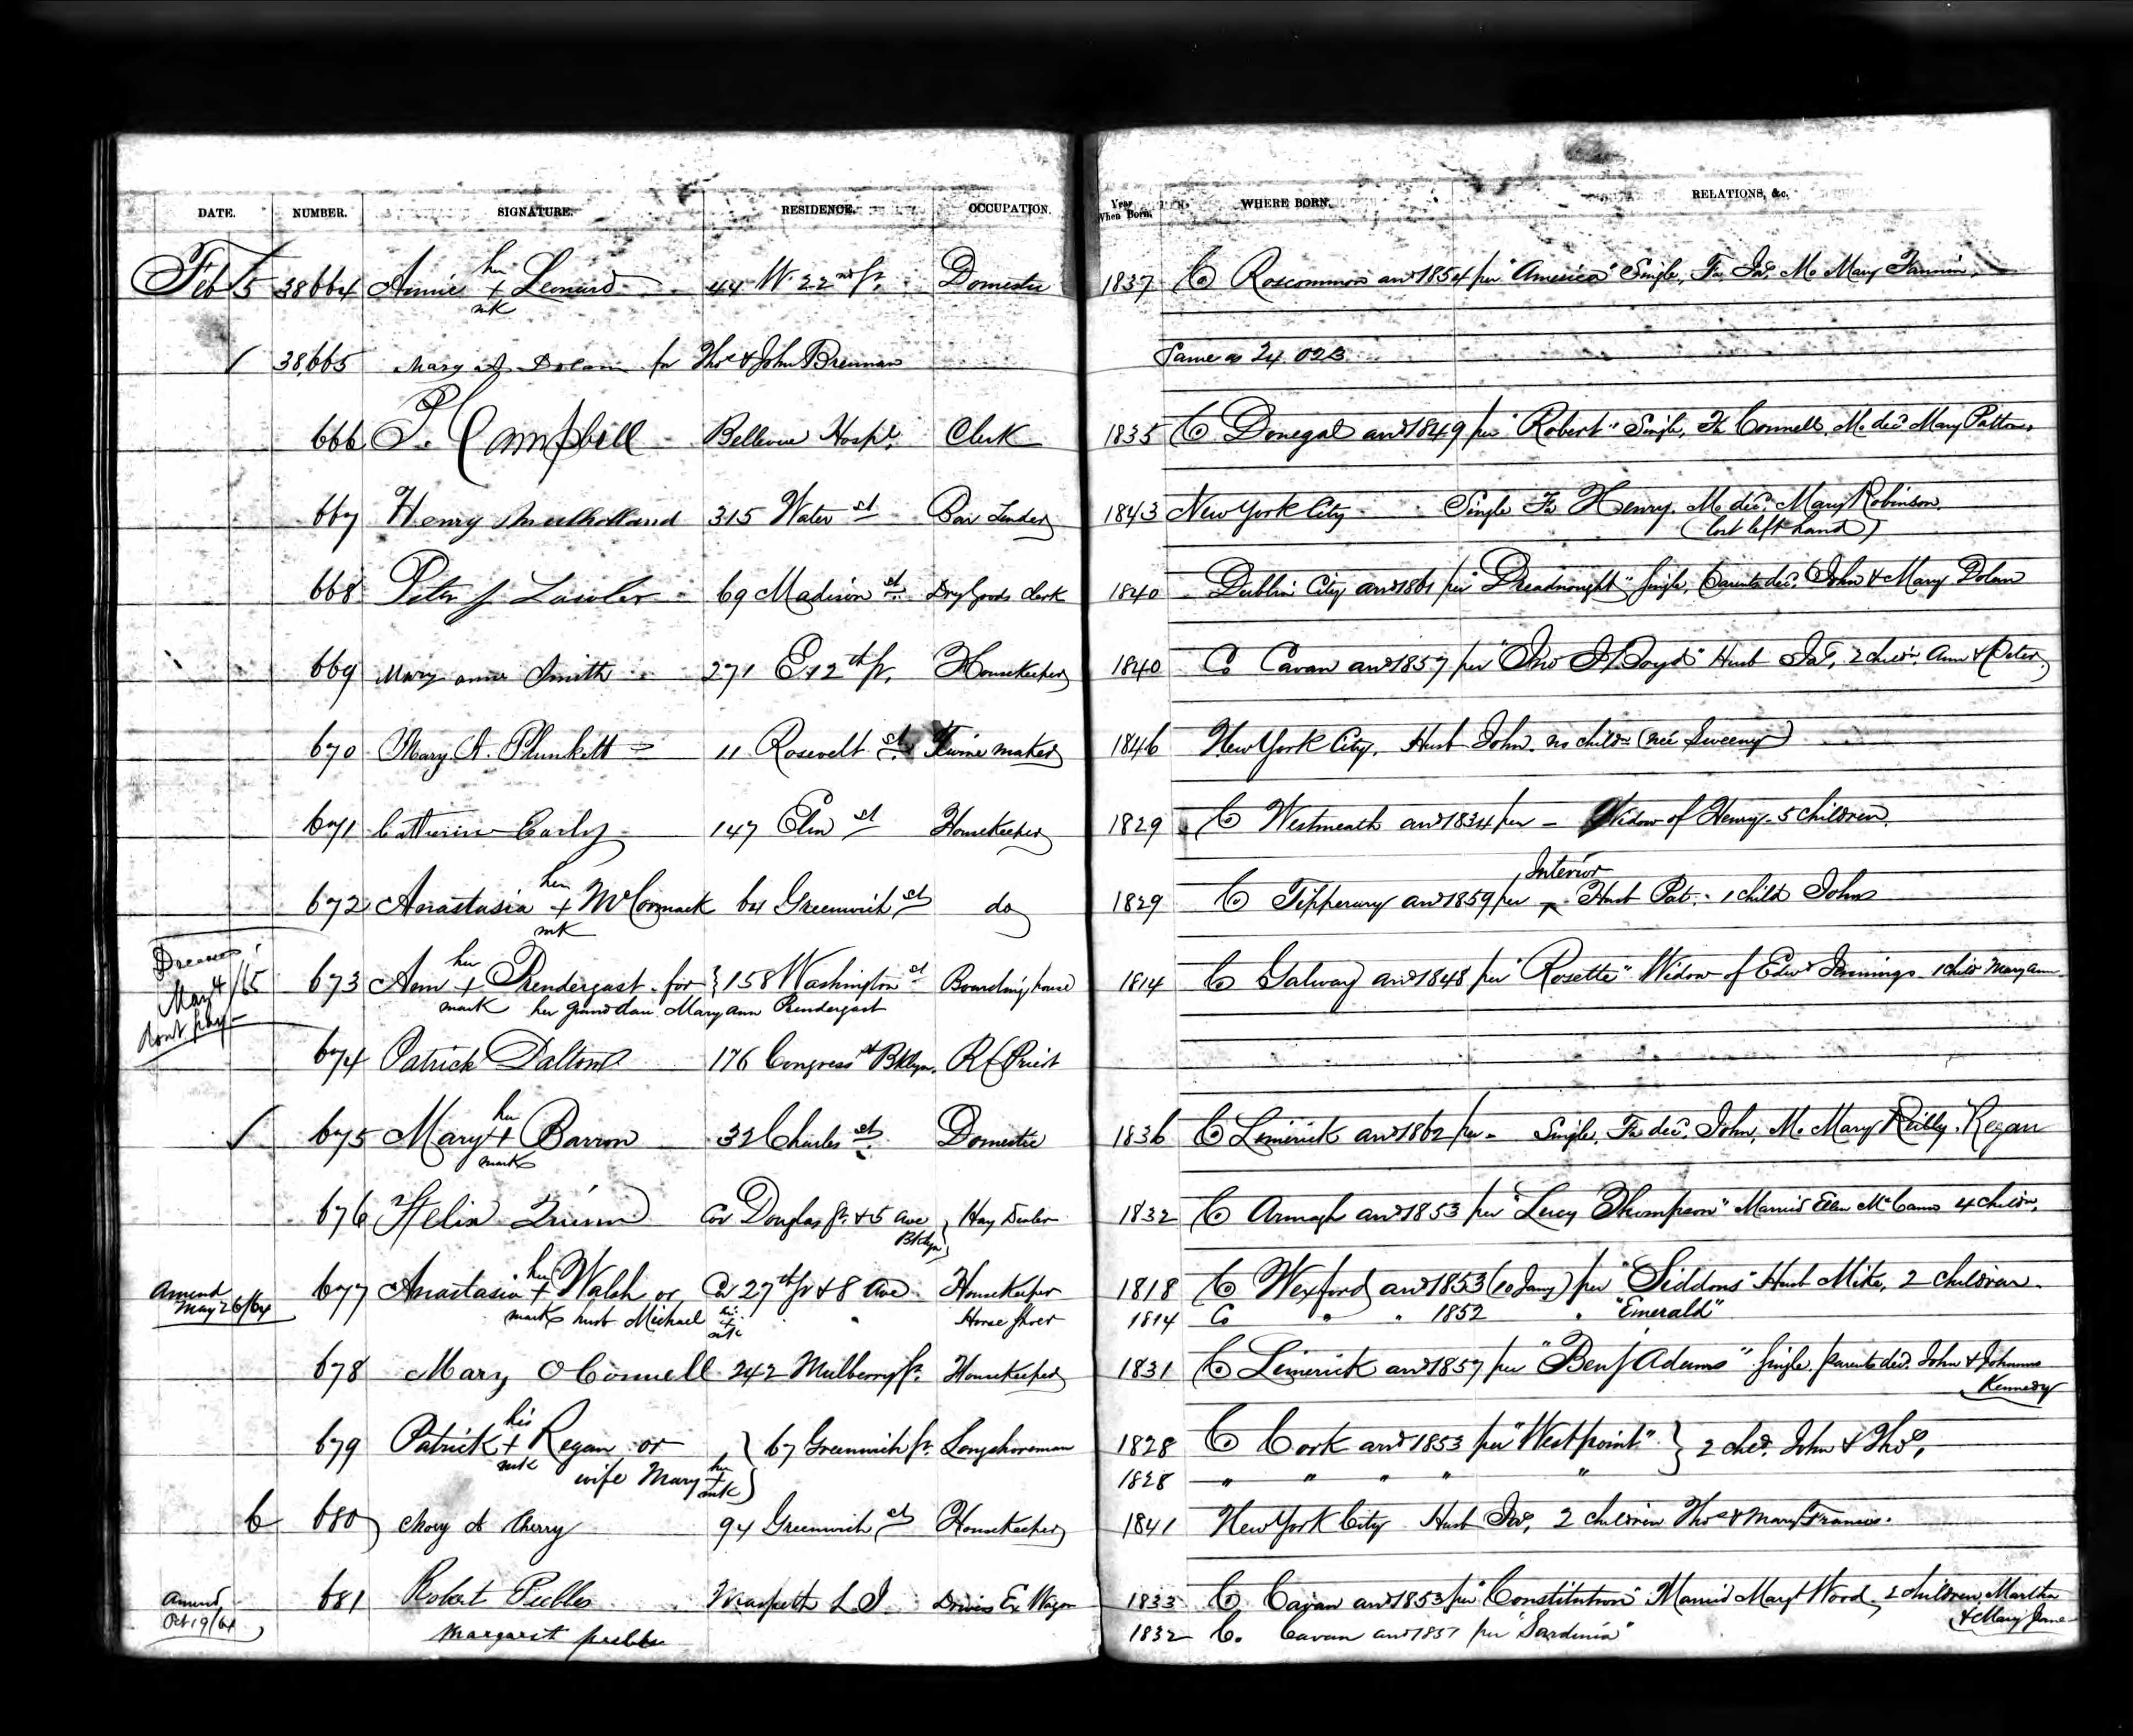 DATE. NUMBER. SIGNATURE. RESIDENCE. OCCUPATION. Year When Born. WHERE BORN. RELATIONS, &c.
Feb 15 38664 Annie her + Leonard 44 W 22nd St. Domestic 1837 Co Roscommon arrd 1854 per "America" Single, Fa Jas, Mo Mary
mk
38,665 Mary A Dolan for Thos & John Brennan Same as 24.023
666 P. Campbell Bellevue Hospl. Clerk 1835 Co Donegal arrd 1849 per "Robert" Single, Fa Connell, Mo decd Mary Patton
667 Henry Mulholland 315 Water st Bar Tender 1843 New York City Single Fa Henry. Mo decd. Mary Robinson.
(lost left hand)
668 Peter J Lawler 69 Madison st. Dry Goods Clerk 1840 Dublin City arrd 1861 per "Dreadnought" Single, Parents decd. John & Mary Dolan
669 Mary anne Smith 271 E. 12th St. Housekeeper 1840 Co Cavan arrd 1857 per "Jno J Boyd" Husb Jas, 2 child. Ann & Peter
670 Mary A. Plunkett 11 Rosevelt st. Twine maker 1846 New York City. Husb John. no childn (neé Sweeny)
671 Catherine Early 147 Elm st Housekeeper 1829 Co Westmeath arrd 1834 per – Widow of Henry – 5 children.
Interior
672 Anastasia her + McCormack 64 Greenwich st do 1829 Co Tipperary arrd 1859 per Husb Pat. – 1 child John
mk
Deceased
May 4/65
dont pay –
673 Ann her + Prendergast for } 158 Washington st Boarding house 1814 Co Galway arrd 1848 per "Rosette" Widow of Edwd Jennings 1 child Mary ann
mark her grand dau. Mary Ann Prendergast
674 Patrick Dalton 176 Congress st Bklyn. RC Priest
675 Mary her + Barron 32 Charles st. Domestic 1836 Co Limerick arrd 1862 per – Single, Fa decd. John, Mo Mary Reilly. Regan
mark
676 Felix Quinn Cor Douglas St. & 5 Ave Bklyn } Hay Dealer 1832 Co Armagh arrd 1853 per "Lucy Thompson" Married Ellen McCann 4 children.
Amend May 26/64 677 Anastasia her + Walsh or Cor 27th St & 8 Ave Housekeeper 1818 Co Wexford arrd 1853 (10 Jany) per "Siddons" Husb Mike, 2 children.
mark husb Michael his + mk " Horse Shoer 1814 Co " " 1852 " "Emerald"
678 Mary OConnell 242 Mulberry St. Housekeeper 1831 Co Limerick arrd 1857 per "Benj Adams" Single. parents decd. John & Johanna
Kennedy
679 Patrick his + Regan or } 67 Greenwich St. Longshoreman 1828 Co Cork arrd 1853 per "Westpoint" } 2 chd. John & Thos,
mk wife Mary her + mk 1828 " " " " "
6 680 Mary A Cherry 94 Greenwich st Housekeeper 1841 New York City Husb Jas, 2 children Thos & Mary Francis.
Amend Oct 19/64 681 Robert Peebles Maspeth L I Drives Ex Wagon 1833 Co Cavan arrd 1853 per "Constitution" Married Margt Wood, 2 children, Martha
& Mary Jane
Margaret peebles 1832 Co. Cavan arrd 1857 per "Sardinia"